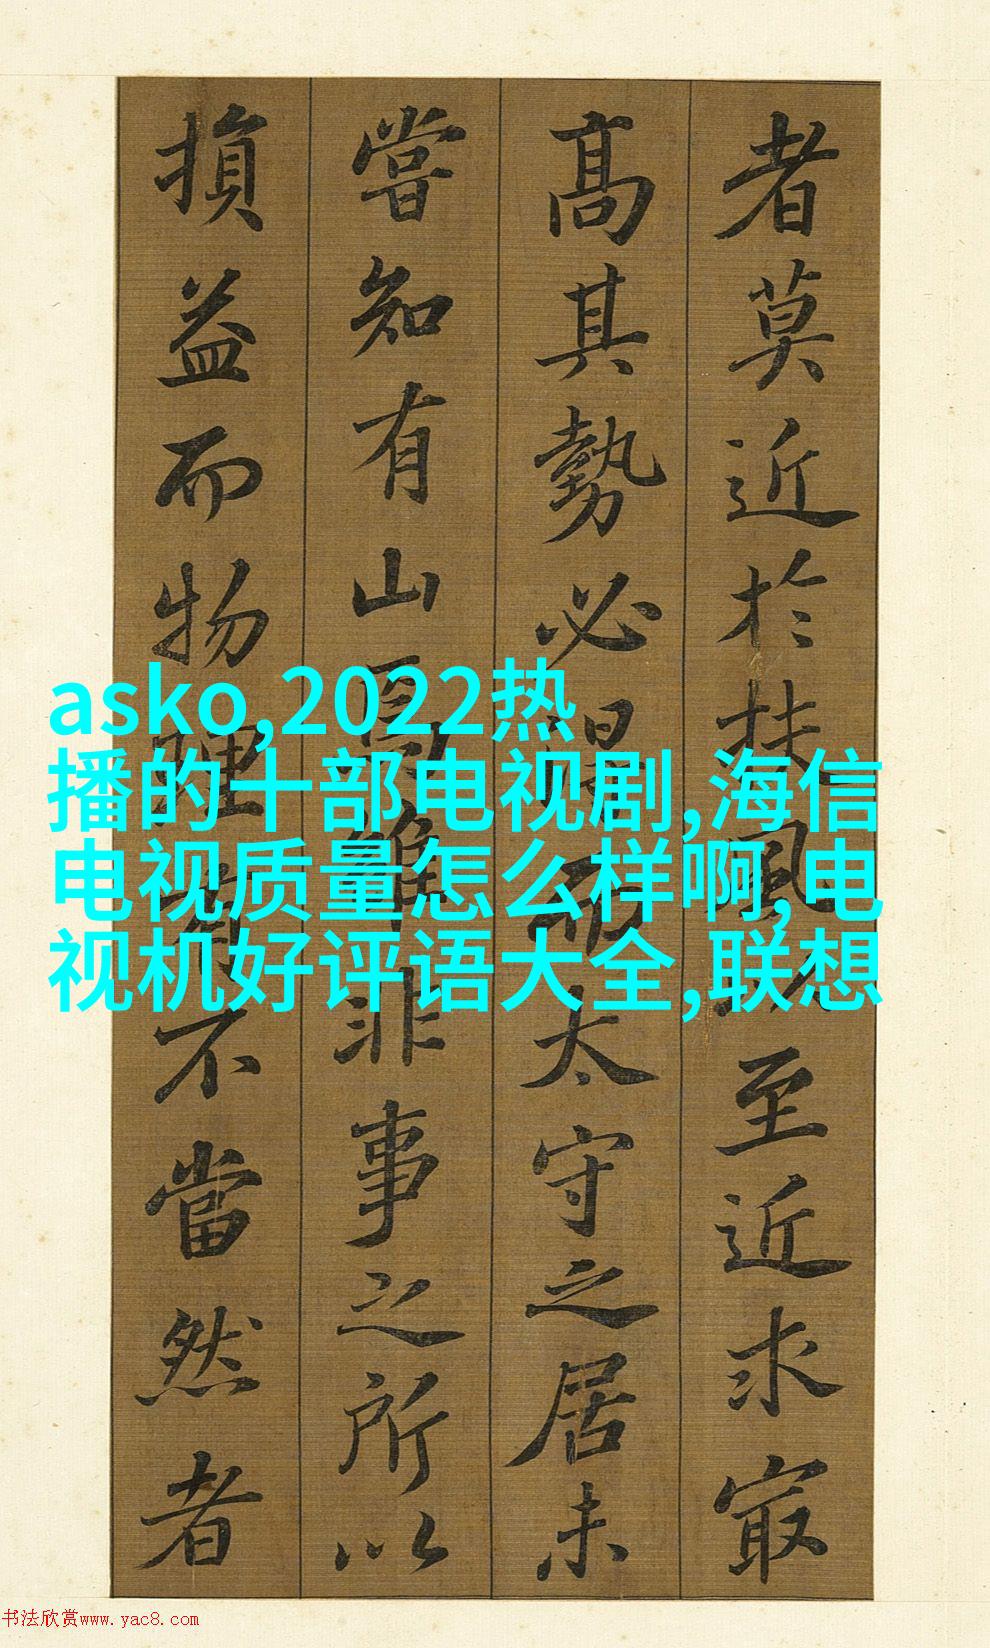 者莫近於扶風以至近求㝡
髙其勢必得而太守之居未
嘗知有山焉雖非事之所以
損益而物理有不當然者
asko,2022热
播的十部电视剧,海信
电视质量怎么样啊,电
视机好评语大全,联想
书法欣赏www.yac8.com